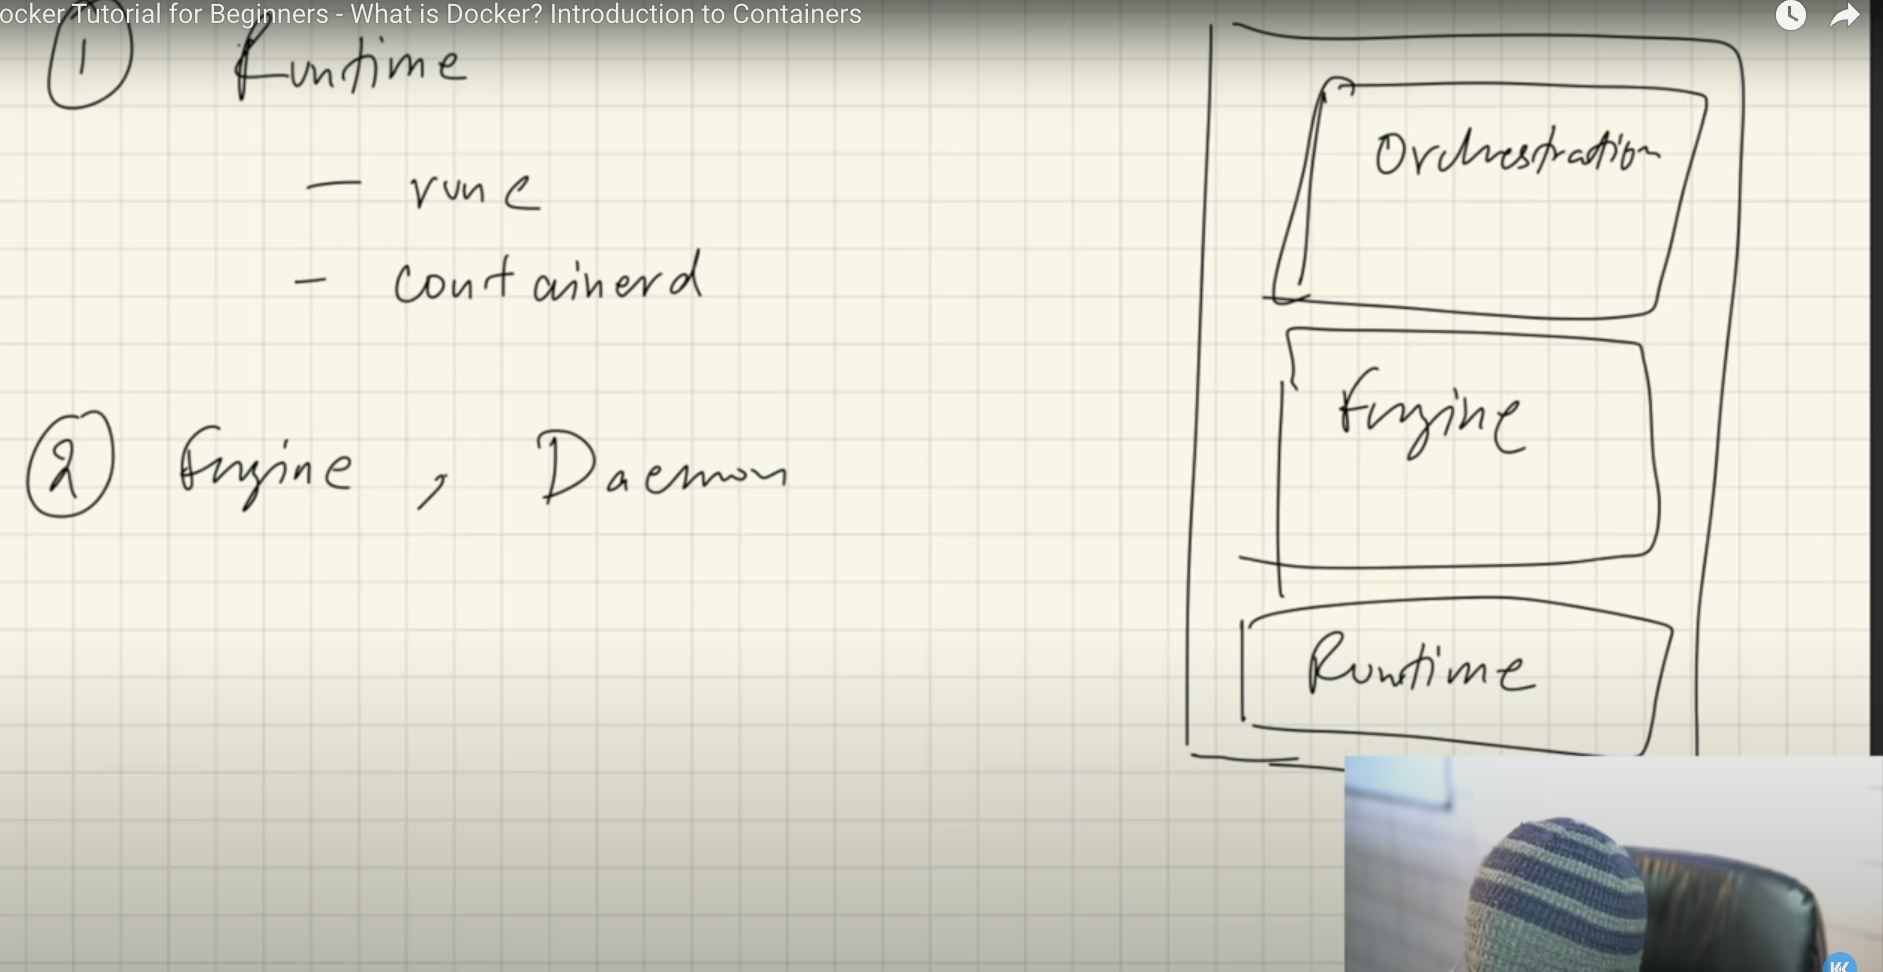 ocker Tutorial for Beginners - What is Docker? Introduction to Containers
1 Runtime
- runc
- containerd
2 Engine, Daemon
Orchestration
Engine
Runtime